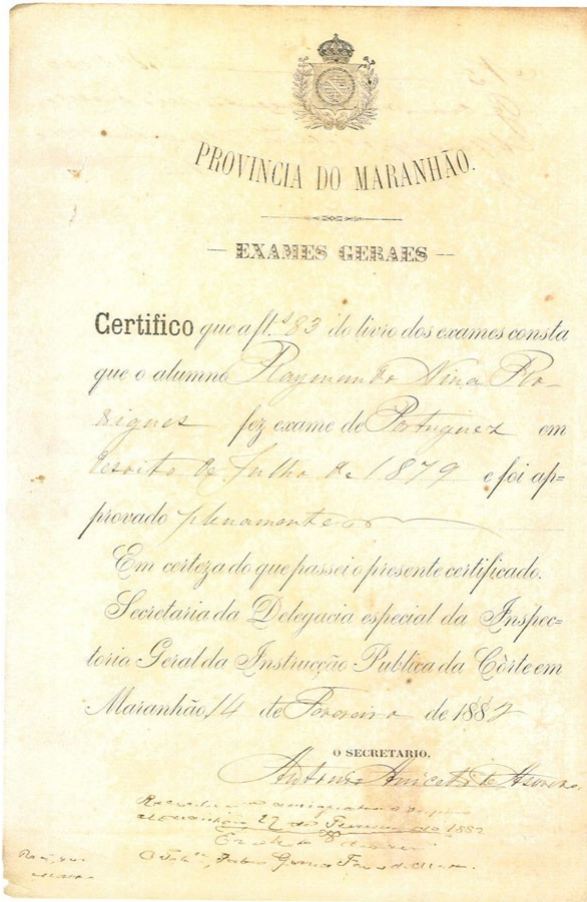 PROVINCIA DO MARANHÃO.
— EXAMES GERAES —
Certifico que a fl.s 83 do livro dos exames consta
que o alumno Raymundo Nina Ro-
drigues fez exame de Portuguez em
desoito de Julho de 1879 e foi ap=
provado plenamente
Em certeza do que passei o presente certificado.
Secretaria da Delegacia especial da Inspec-
toria Geral da Instrucção Publica da Côrte em
Maranhão, 14 de Fevereiro de 1882
O SECRETARIO.
Antonio Aniceto de Azevedo
Maranhão 27 de Fevereiro de 1882